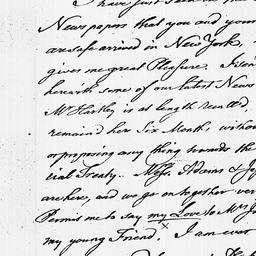 have just
News papers that you and your
are safe arrived in New York,
gives me great Pleasure.
herewith some of our latest News
Mr Hartley is at length recalled,
remain'd here Six Months, without
proposing any thing towards the
cial Treaty. Messrs. Adams &
are here, and we go on together very
Permit me to say my Love to Mrs
my young Friend. × I am ever